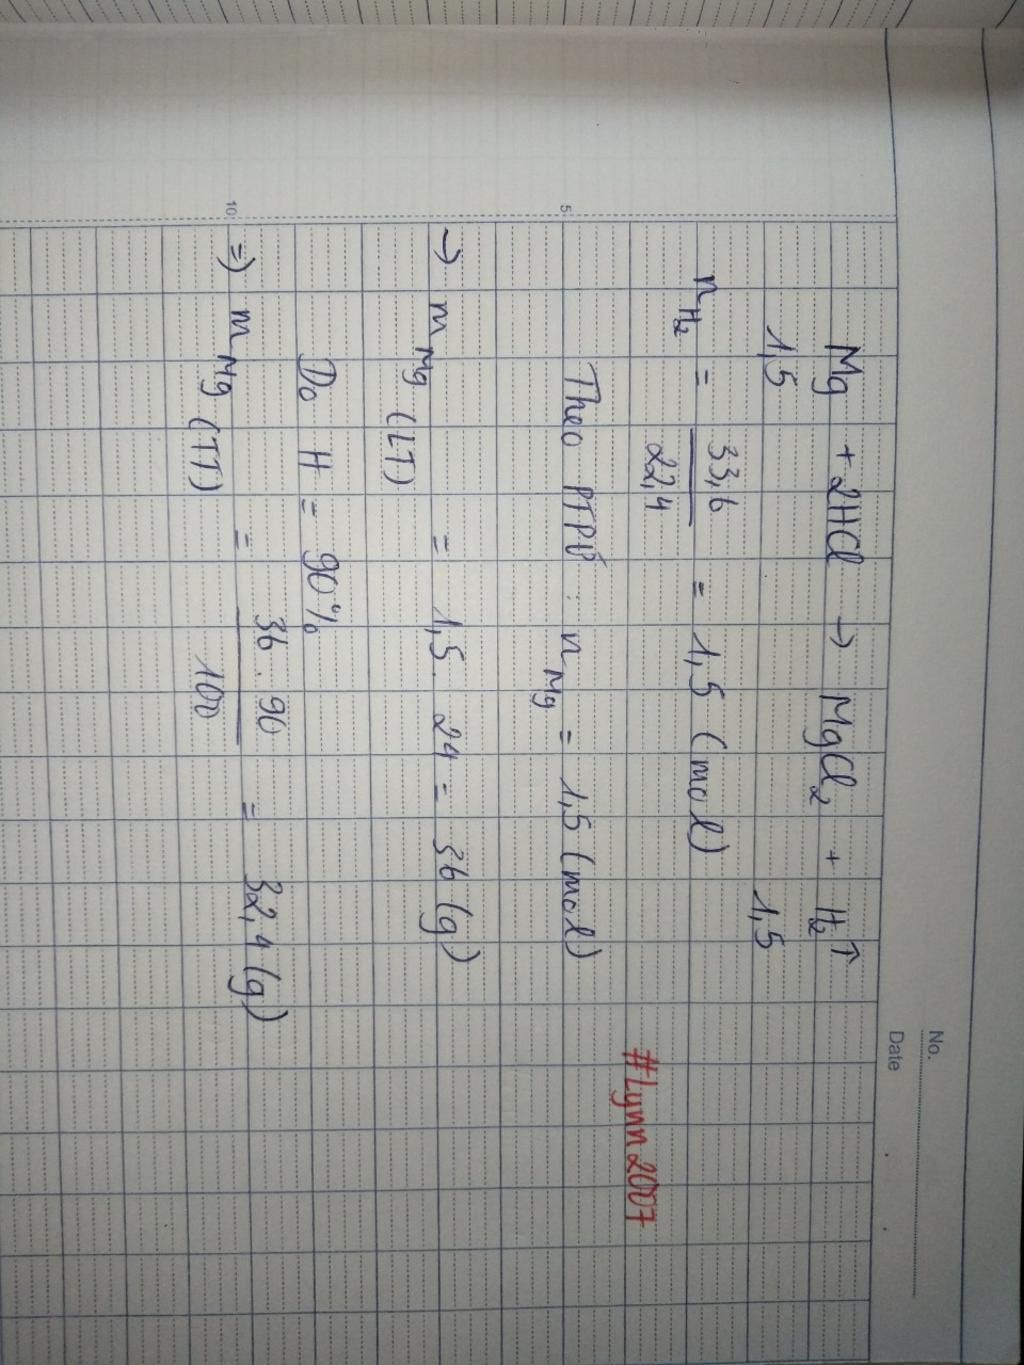 No.
Date
Mg + 2HCl → MgCl₂ + H₂↑
1,5 1,5
n H₂ = 33,6 / 22,4 = 1,5 (mol)
#Lynn2007
5
Theo PTPƯ : n Mg = 1,5 (mol)
→ m Mg (LT) = 1,5 . 24 = 36 (g)
Do H = 90%
10
=> m Mg (TT) = 36 . 90 / 100 = 32,4 (g)